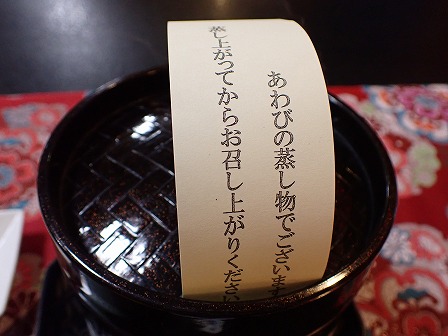 あわびの蒸し物でございます
蒸し上がってからお召し上がりください